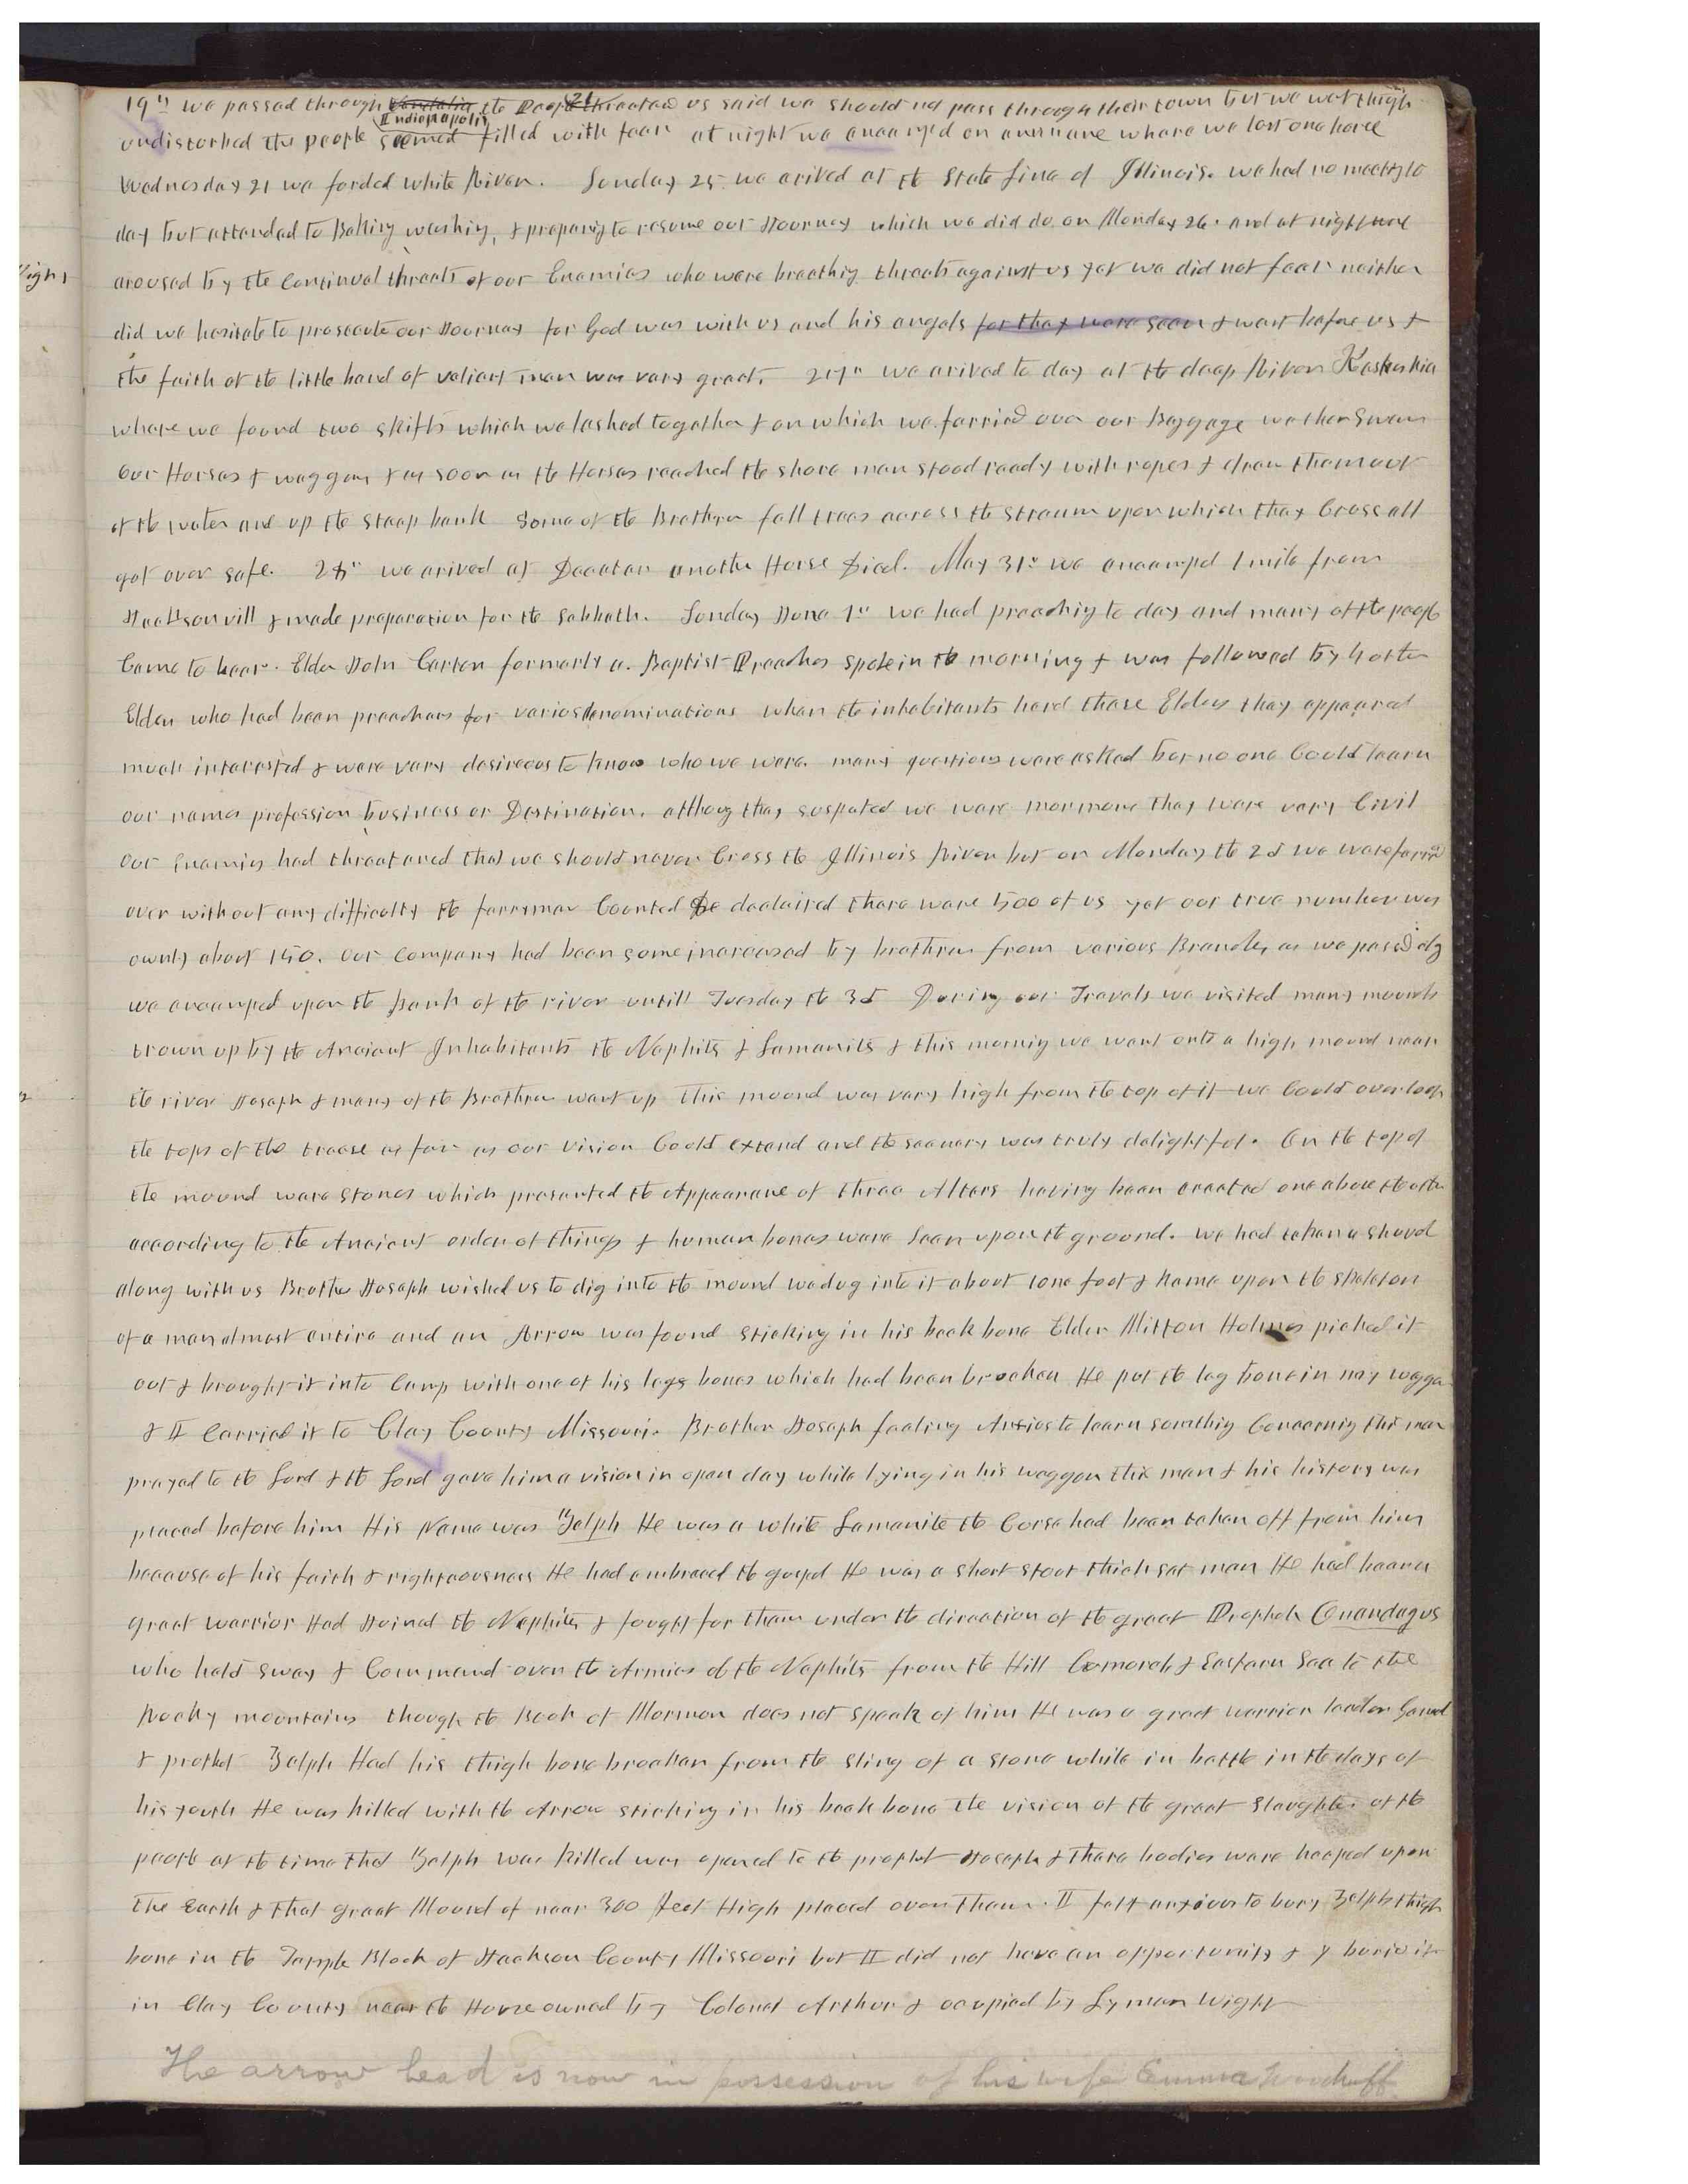 19th we passed through Vandalia Indianapolis the People threatned us said we should not pass through their town but we wet through
21
undisturbed the people seemed filled with fear at night we encamped on an where we lost one horse
Wednesday 21 we forded white River. Sunday 25. we arived at the State line of Illinois. we had no meeting to
day but attended to Baking washing, & preparing to resume our Journey which we did do. on Monday 26. and at night were
aroused by the Continual threats of our Enemies who were breathig threats against us yet we did not fear neither
did we hesitate to prosecute our Journey for God was with us and his angels for they were seen & went before us &
the faith of the little band of valiant men was very great. 27th we arived to day at the deep River Kaskaskia
where we found two skifts which we lashed together & on which we ferried over our Baggage we then Swam
our Horses & waggons & as soon as the Horses reached the shore men stood ready with ropes & draw them out
of the water and up the steep bank Some of the Brethren fell trees across the stream upon which they Cross all
got over safe. 28th we arived at Decatur another Horse Died. May 31st we encamped 1 mile from
Jacksonvill & made preparation for the Sabbath. Sunday June 1st we had preachig to day and many of the people
Came to hear. Elder John Carter formerly a. Baptist Preacher spoke in the morning & was followed by 4 other
Elders who had been preachers for varios denominations when the inhabitants herd these Elders they appeared
much interested & were very desireous to know who we were. many questions were asked but no one Could learn
our names profession business or Destination. althoug they suspected we were mormons they were very Civil
Our Enemies had threatened that we should never Cross the Illinois River but on Monday the 2d we were ferried
over without any difficulty the ferryman Counted & declaired there were 500 of us yet our true number was
ownly about 150. Our Company had been some increased by brethren from various Branches as we passed alog
we encamped upon the Bank of the river untill Tuesday the 3d During our Travels we visited many mounds
trown up by the Ancient Inhabitants the Nephits & Lamanits & this mornig we went onto a high mound near
the river Joseph & many of the Brethren went up This mound was very high from the top of it we Could overlook
the tops of the treese as far as our vision Could extend and the scenery was truly delightful. On the top of
the mound were stones which presented the Appearane of three Alters having been erected one above the other
according to the Ancient order of things & human bones were seen upon the ground. we had taken a shovel
along with us Brother Joseph wished us to dig into the mound we dug into it about one foot & kame upon the skeleton
of a man almost entire and an Arrow was found sticking in his back bone Elder Milton Holmes picked it
out & brought it into Camp with one of his legs bones which had been broken He put the leg bone in my waggon
& I Carried it to Clay County Missouri. Brother Joseph feeling Anxios to learn somthig Concernig this man
prayed to the Lord & the Lord gave him a vision in open day while lying in his waggon this man & his history was
placed before him His Name was Zelph He was a white Lamanite the Corse had been taken off from him
because of his faith & righteousness He had embraced the gospel He was a short stout thick set man He had been a
great warrior Had Joined the Nephites & fought for them under the direction of the great Prophet Onandagus
who held sway & Command over the Armies of the Nephits from the Hill Comorah & Eastern Sea to the
Rocky mountains though the Book of Mormon does not speak of him He was a great warrior leader
& prophet Zelph Had his thigh bone broaken from the sling of a stone while in battle in the days of
his youth He was killed with the Arrow sticking in his back bone the vision of the great slaughter of the
people at the time that Zelph was killed was opened to the prophet Joseph & there bodies were heaped upon
the Earth & that great Mound of near 300 feet High placed over them. I felt anxious to bury Zelphs thigh
bone in the Temple Block of Jackson County Missouri but I did not have an opportunity & I buried it
in Clay County near the House owned by Colonel Arthur & ocupied by Lyman Wight
The arrow head is now in possession of his wife Emma Woodruff